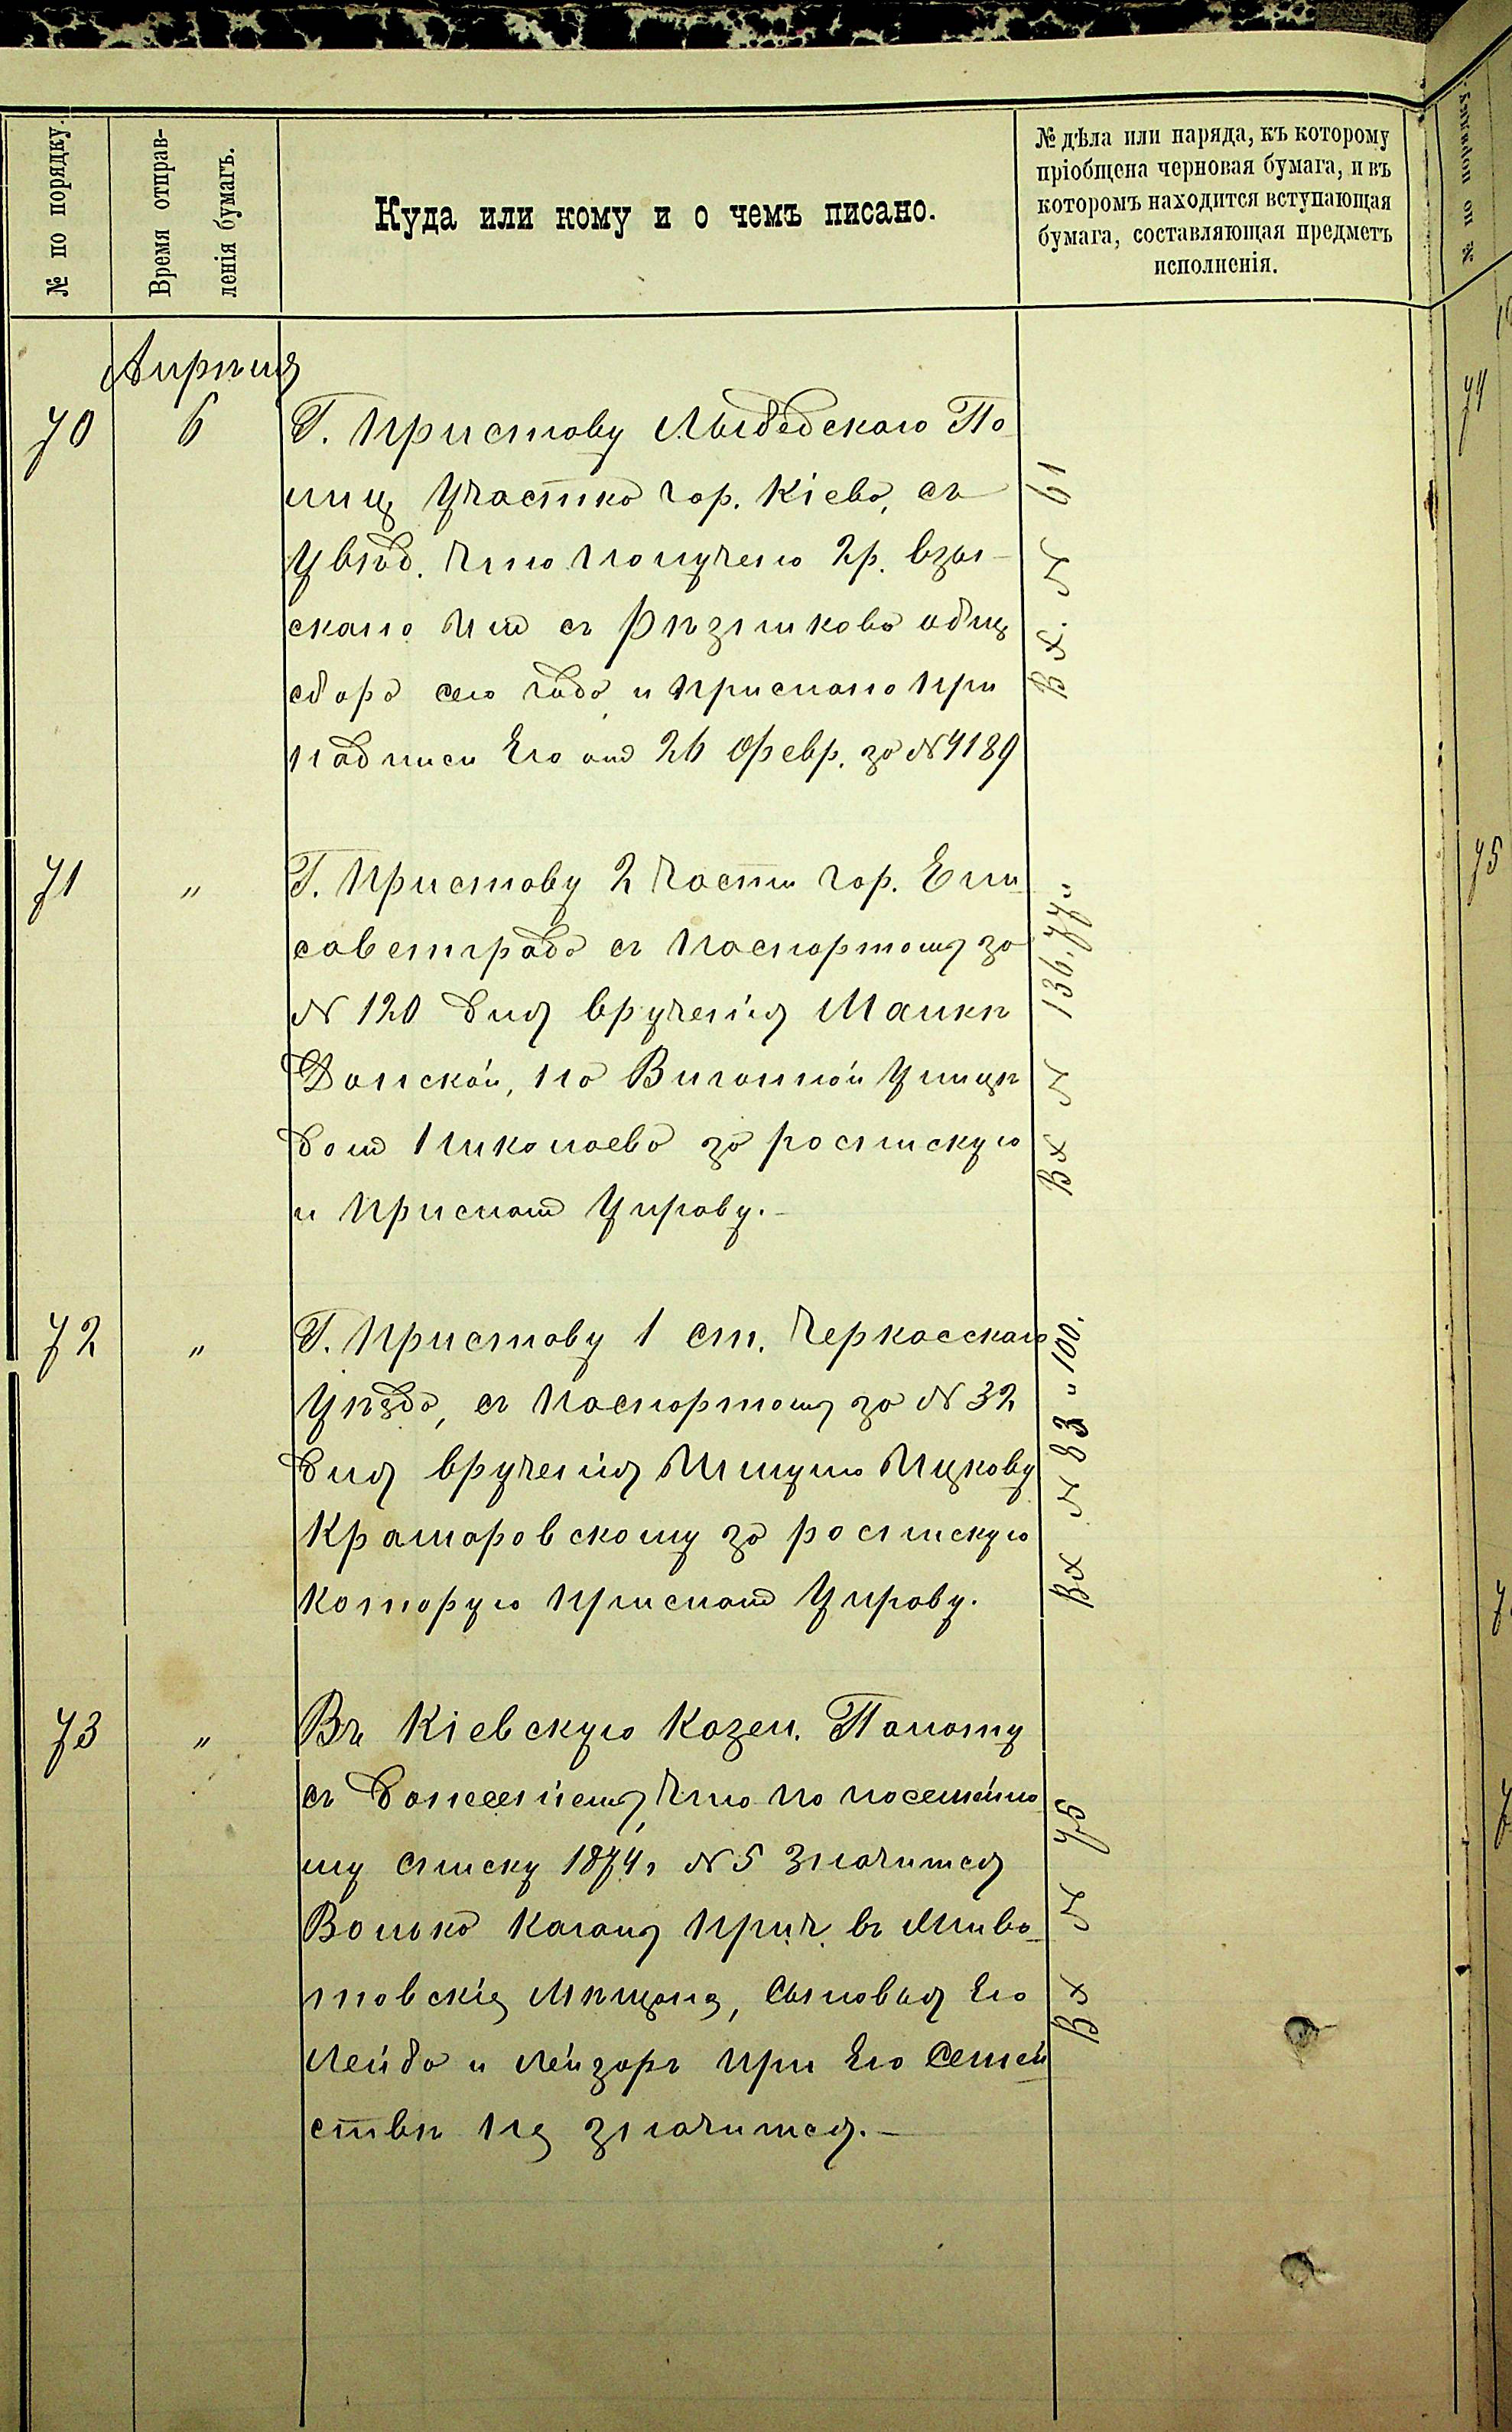 № по порядку.
Время отправ-
ленія бумагъ.
Куда или кому и о чемъ писано.
№ дѣла или наряда, къ которому
пріобщена черновая бумага, и въ
которомъ находится вступающая
бумага, составляющая предметъ
исполненія.
Апрѣля
70 6 Г. Приставу Лыбедскаго По
лиц Участка гор. Кіева, съ
Увѣд. что получено 2р. взы-
скано им съ Рѣзникова общ
сбора сего года и прислано при
надписи Его от 26 Февр. за № 4189
Вх. № 61
71 " Г. Приставу 2 части гор. Ели
саветграда съ паспортомъ за
№ 120 для врученія Малкѣ
Донской, по Вигонной Улицѣ
дом Николаева за росписку
и прислат Управу.-
Вх № 136. 77"
72 " Г. Приставу 1 ст. Черкасскаго
Уѣзда, съ паспортомъ за № 32
для врученія Ицкову
Крамаровскому за росписку
которую прислат Управу.
Вх № 83 " 100.
73 " Въ Кіевскую Казен. Палату
съ донесеніемъ, что по посемейно
му списку 1874 г № 5 значится
Волько Каганъ прич. въ Живо
товскіе Мѣщане, Сыновья Его
Лейба и Лейзоръ при Его Семей
ствѣ не значится.-
Вх № 75
74
75